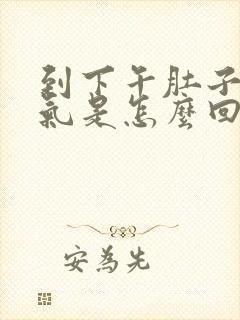 到下午肚子
氣是怎麼回
安為先